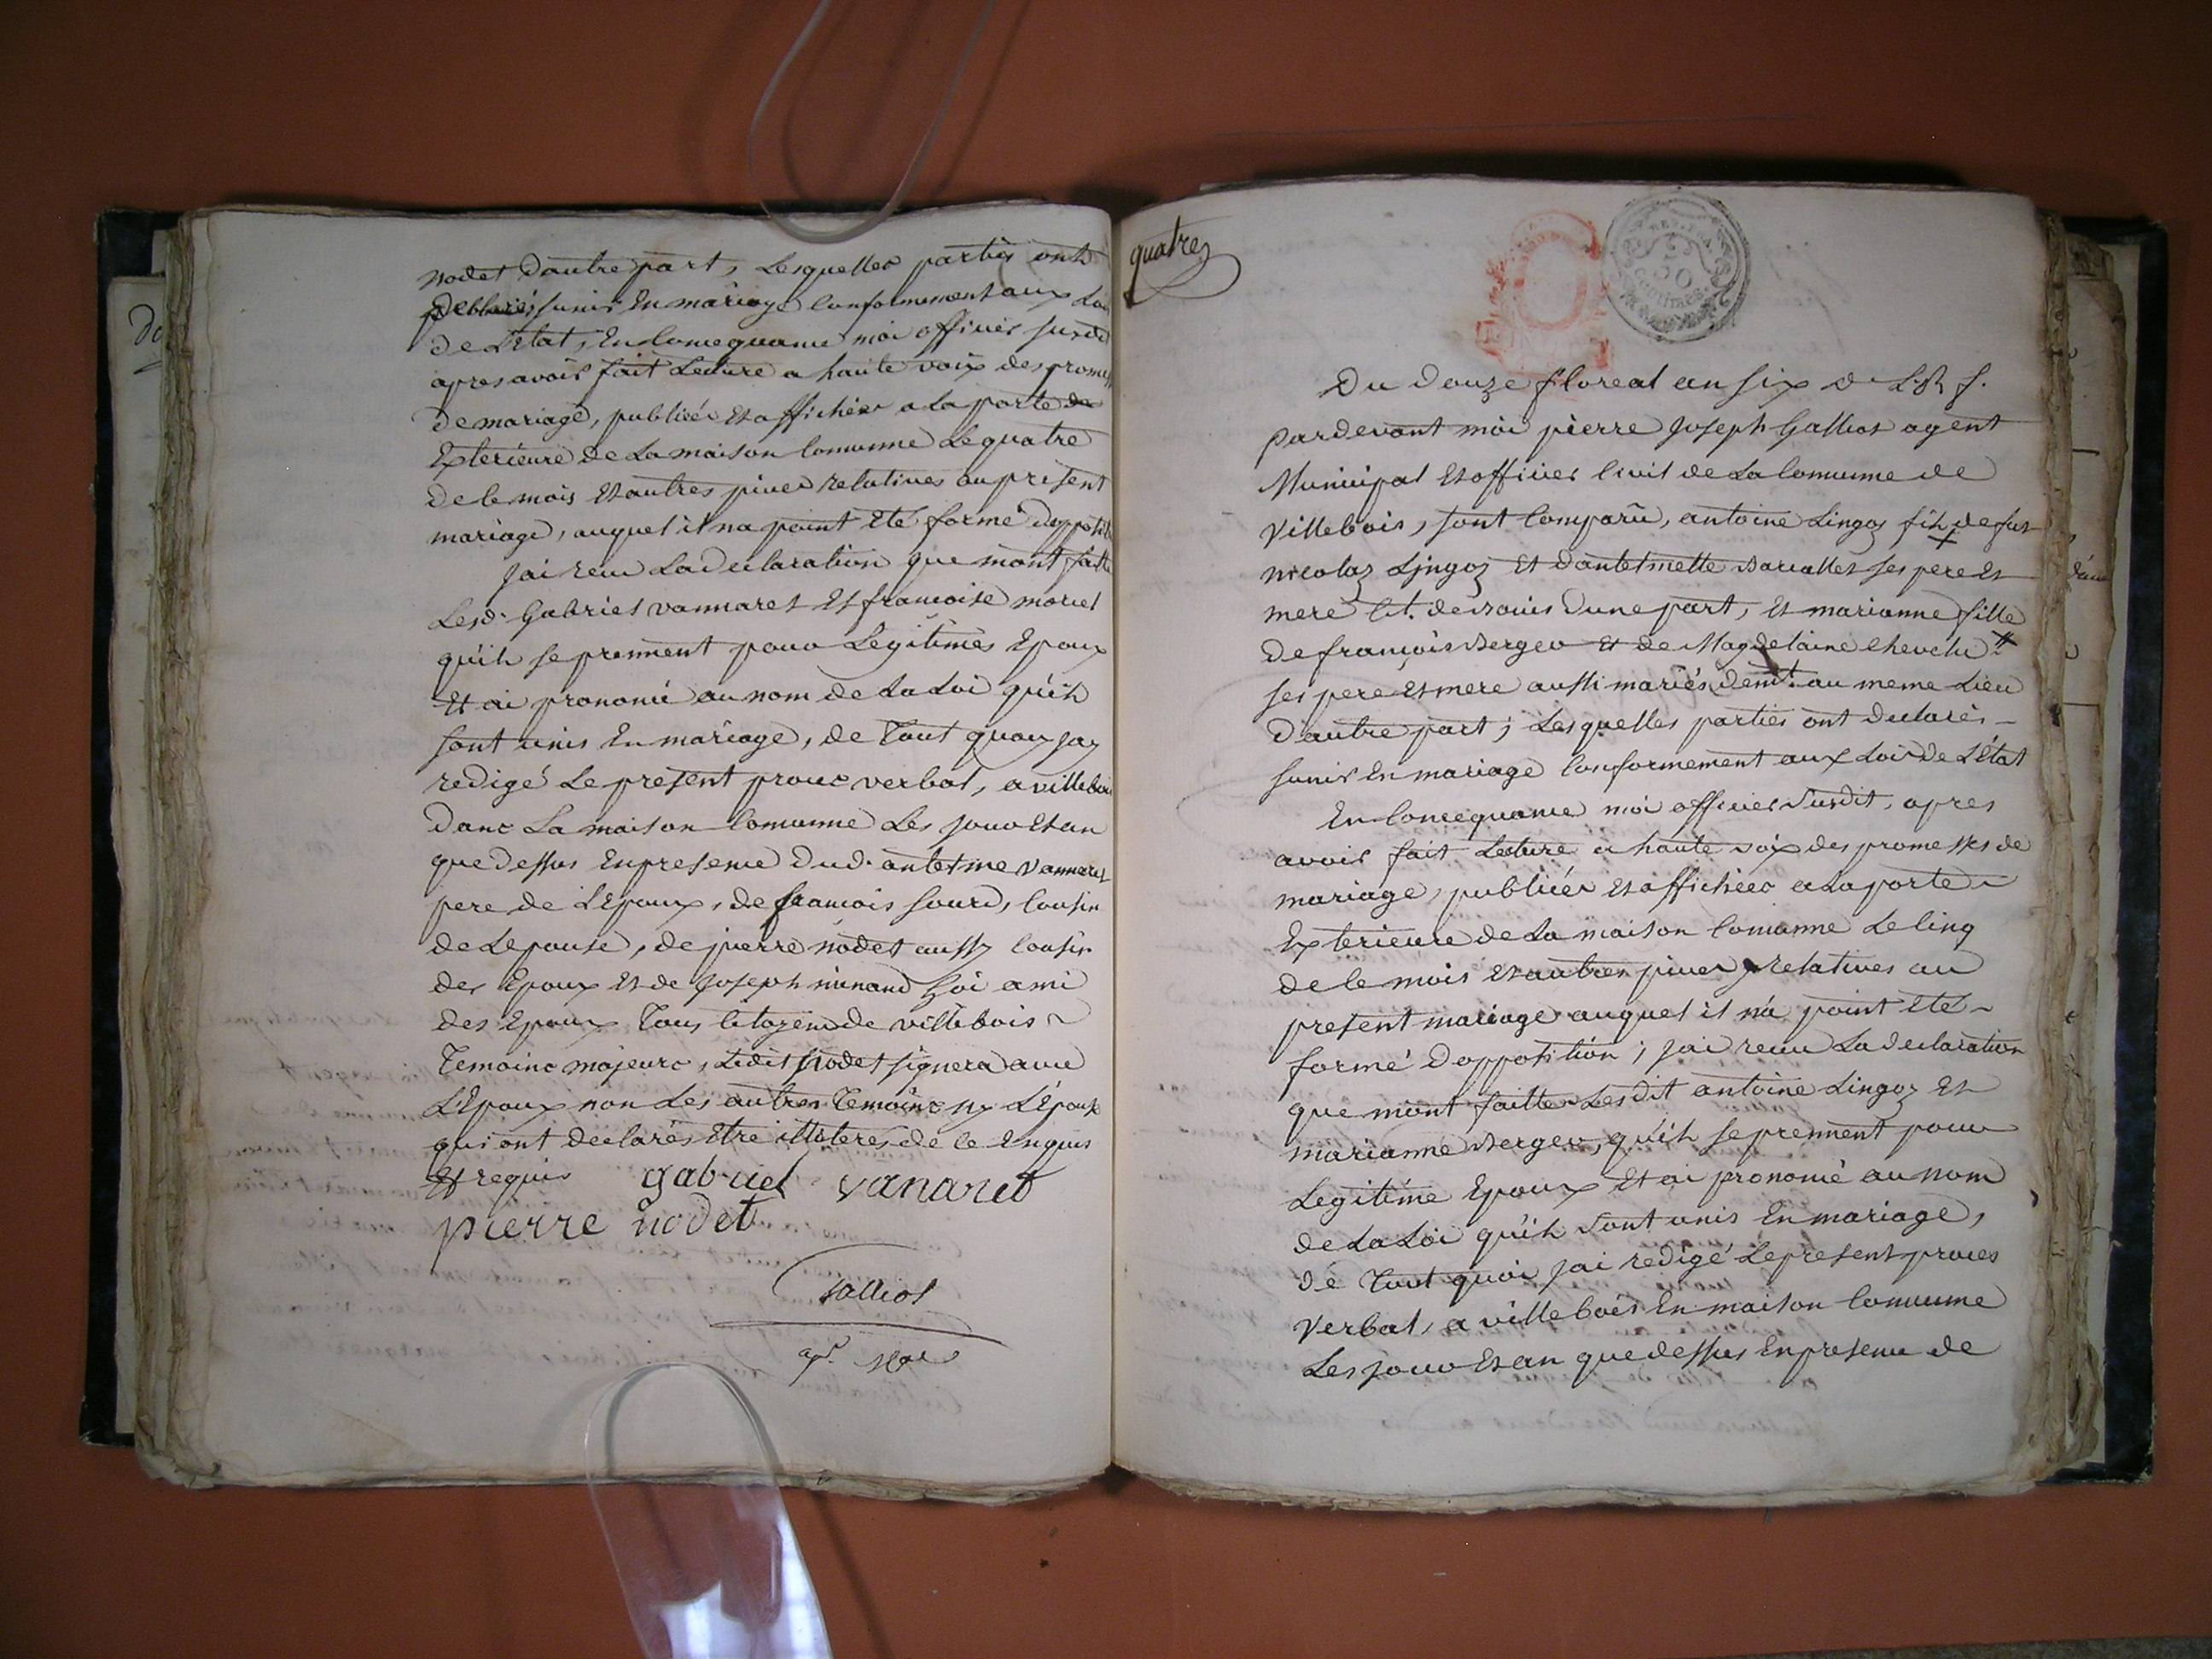 nodet dautre part, Lesquelles parties ont
declarés sunir En mariage Conformement aux Loi
de L'Etat, En Consequance moi officier susdit
apres avoir fait Lecture a haute voix des promess
de mariage, publiées Et affichées a La porte de
Exterieure de La maison Comunne Le quatre
de Ce mois Et autres pieces relatives au present
mariage, auquel il na point Eté formé Dopposit
Jai recu La Declaration que mont faitte
Lesd. Gabriel vannaret Et francoise moriel
quih se prennent pour Legitimes Epoux
Et ai prononcé au nom de La Loi quih
sont unis En mariage, de Tout quoy jay
redigé Le present proces verbal, a villebois
Dans La maison Comunne Les jour Et an
que Dessus En presence Dud. antelme vannaret
pere de L'Epoux, de francois sourd, Cousin
de Lepouse, de pierre nodet aussy Cousin
des Epoux Et de Joseph minand Goi ami
des Epoux Tous Citoyens de villebois
Temoins majeurs, Ledit Nodet signera avec
L'Epoux non Les autres Temoins ny L'Epouse
qui ont declarés Etre illiteres de Ce Enquis
Et requis gabriel vanaret
pierre nodet
Galliot
agt. mpal
quatre
Du Douze floreal an six D L. R f.
Pardevant moi pierre Joseph Galliot agent
Municipal Et officier Civil de La Comunne de
Villebois, sont Comparu, antoine Lingoz fih de fut
nicolas Lingoz Et Dantelmette Barallet ses pere Et
mere Cit. de Dune part, Et marianne fille
De françois Berger Et de Magdelaine Chevelu
ses pere Et mere aussi mariés demt. au meme Lieu
D'autre part; Lesquelles parties ont declarés
sunir En mariage Conformement aux Loix de L'Etat
En Consequance moi officier susdit, apres
avoir fait Lecture à haute voix des promesses de
mariage, publiées Et affichées a La porte
Exterieure de La maison Comunne Le Cinq
de Ce mois Et autres pieces relatives au
present mariage auquel il n'a point Eté
formé D'opposition; jai recu La declaration
que mont faittes Lesdit antoine Lingoz Et
marianne Berger, quih se prennent pour
Legitime Epoux Et ai prononcé au nom
de La Loi quih sont unis En mariage,
de Tout quoi jai redigé Le present proces
Verbal, a villebois En maison Comunne
Les jour Et an que dessus En presence de